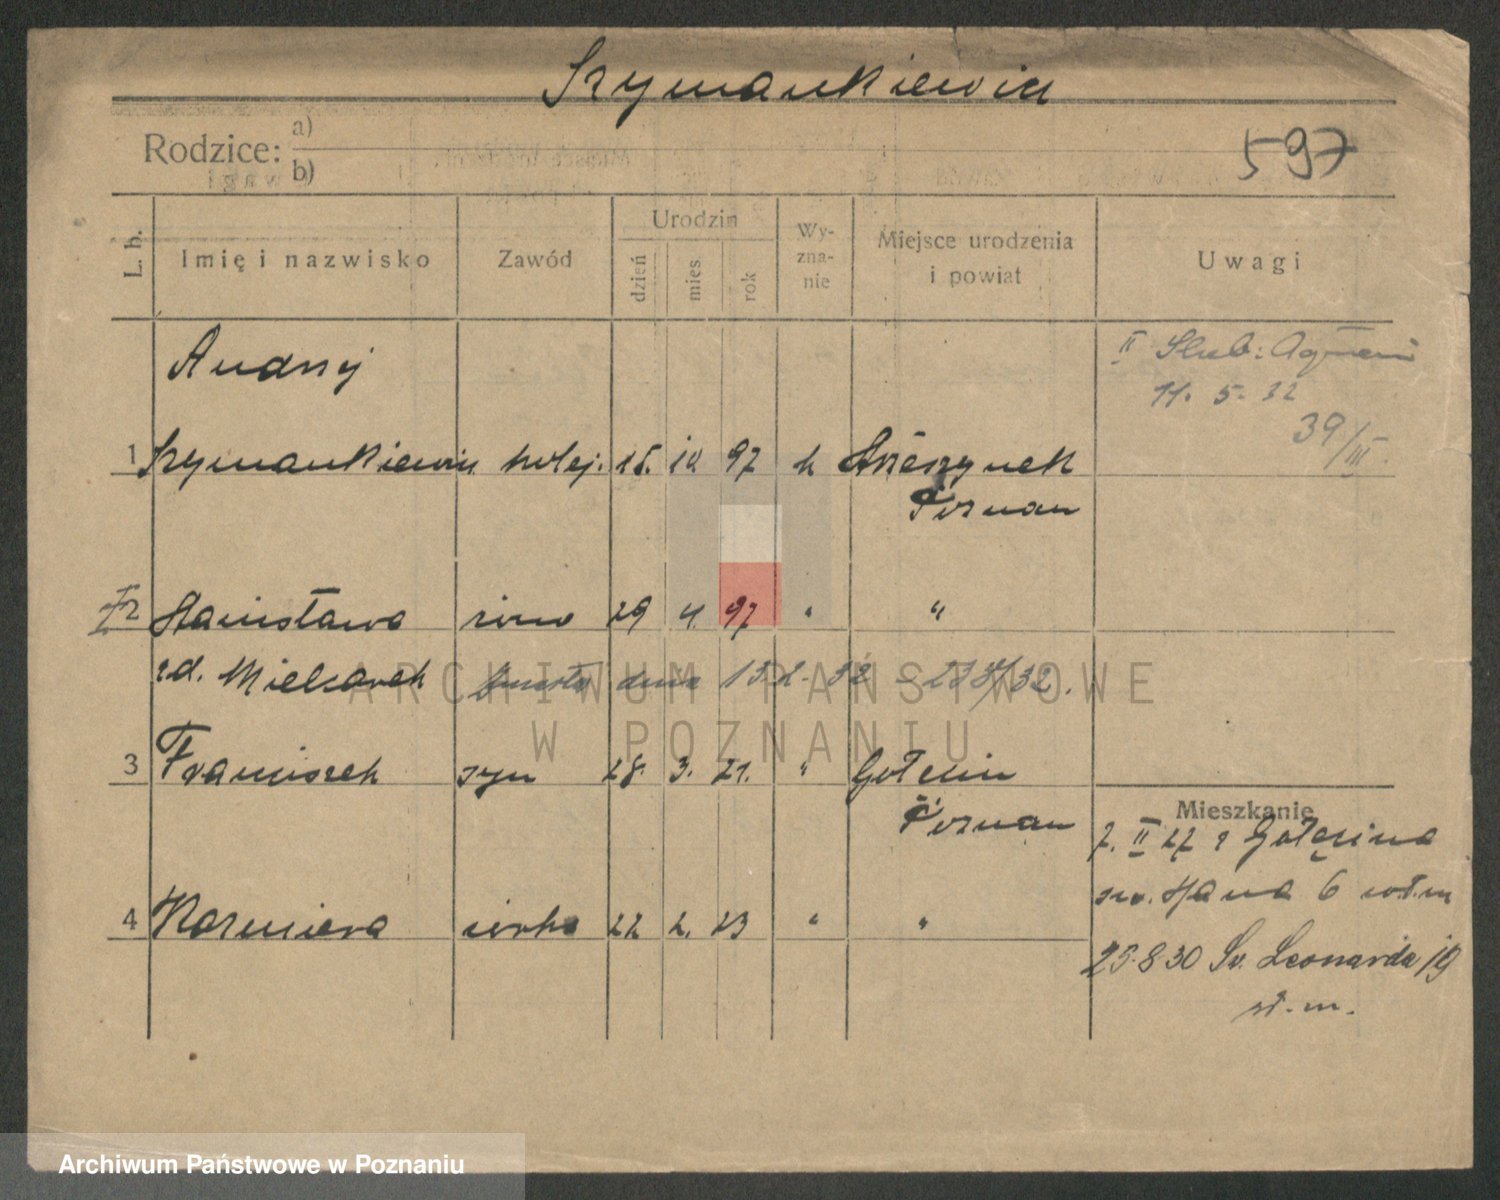 Szymankiewicz
597
Rodzice: a)
b)
L. b. Imię i nazwisko Zawód Urodzin dzień mies. rok Wy-zna-nie Miejsce urodzenia i powiat Uwagi
Andrzej
II Ślub: Agnieszki
11. 5. 32
39/III.
1 Szymankiewicz kolej. 15. 10. 97 k Strzeszynek
Poznań
2 Stanisława żona 29 4. 97 " "
zd. Mielcarek zmarła dnia 15.2.32 - 233/32.
3 Franciszek syn 28. 3. 21. " Golęcin
Poznań
Mieszkanie
7. II 27 z Golęcina
św. Jana 6 wł. m
4 Kazmiera córka 22 2. 23 " "
25.8 30 Św. Leonarda 19
wł. m.
ARCHIWUM PAŃSTWOWE
W POZNANIU
Archiwum Państwowe w Poznaniu